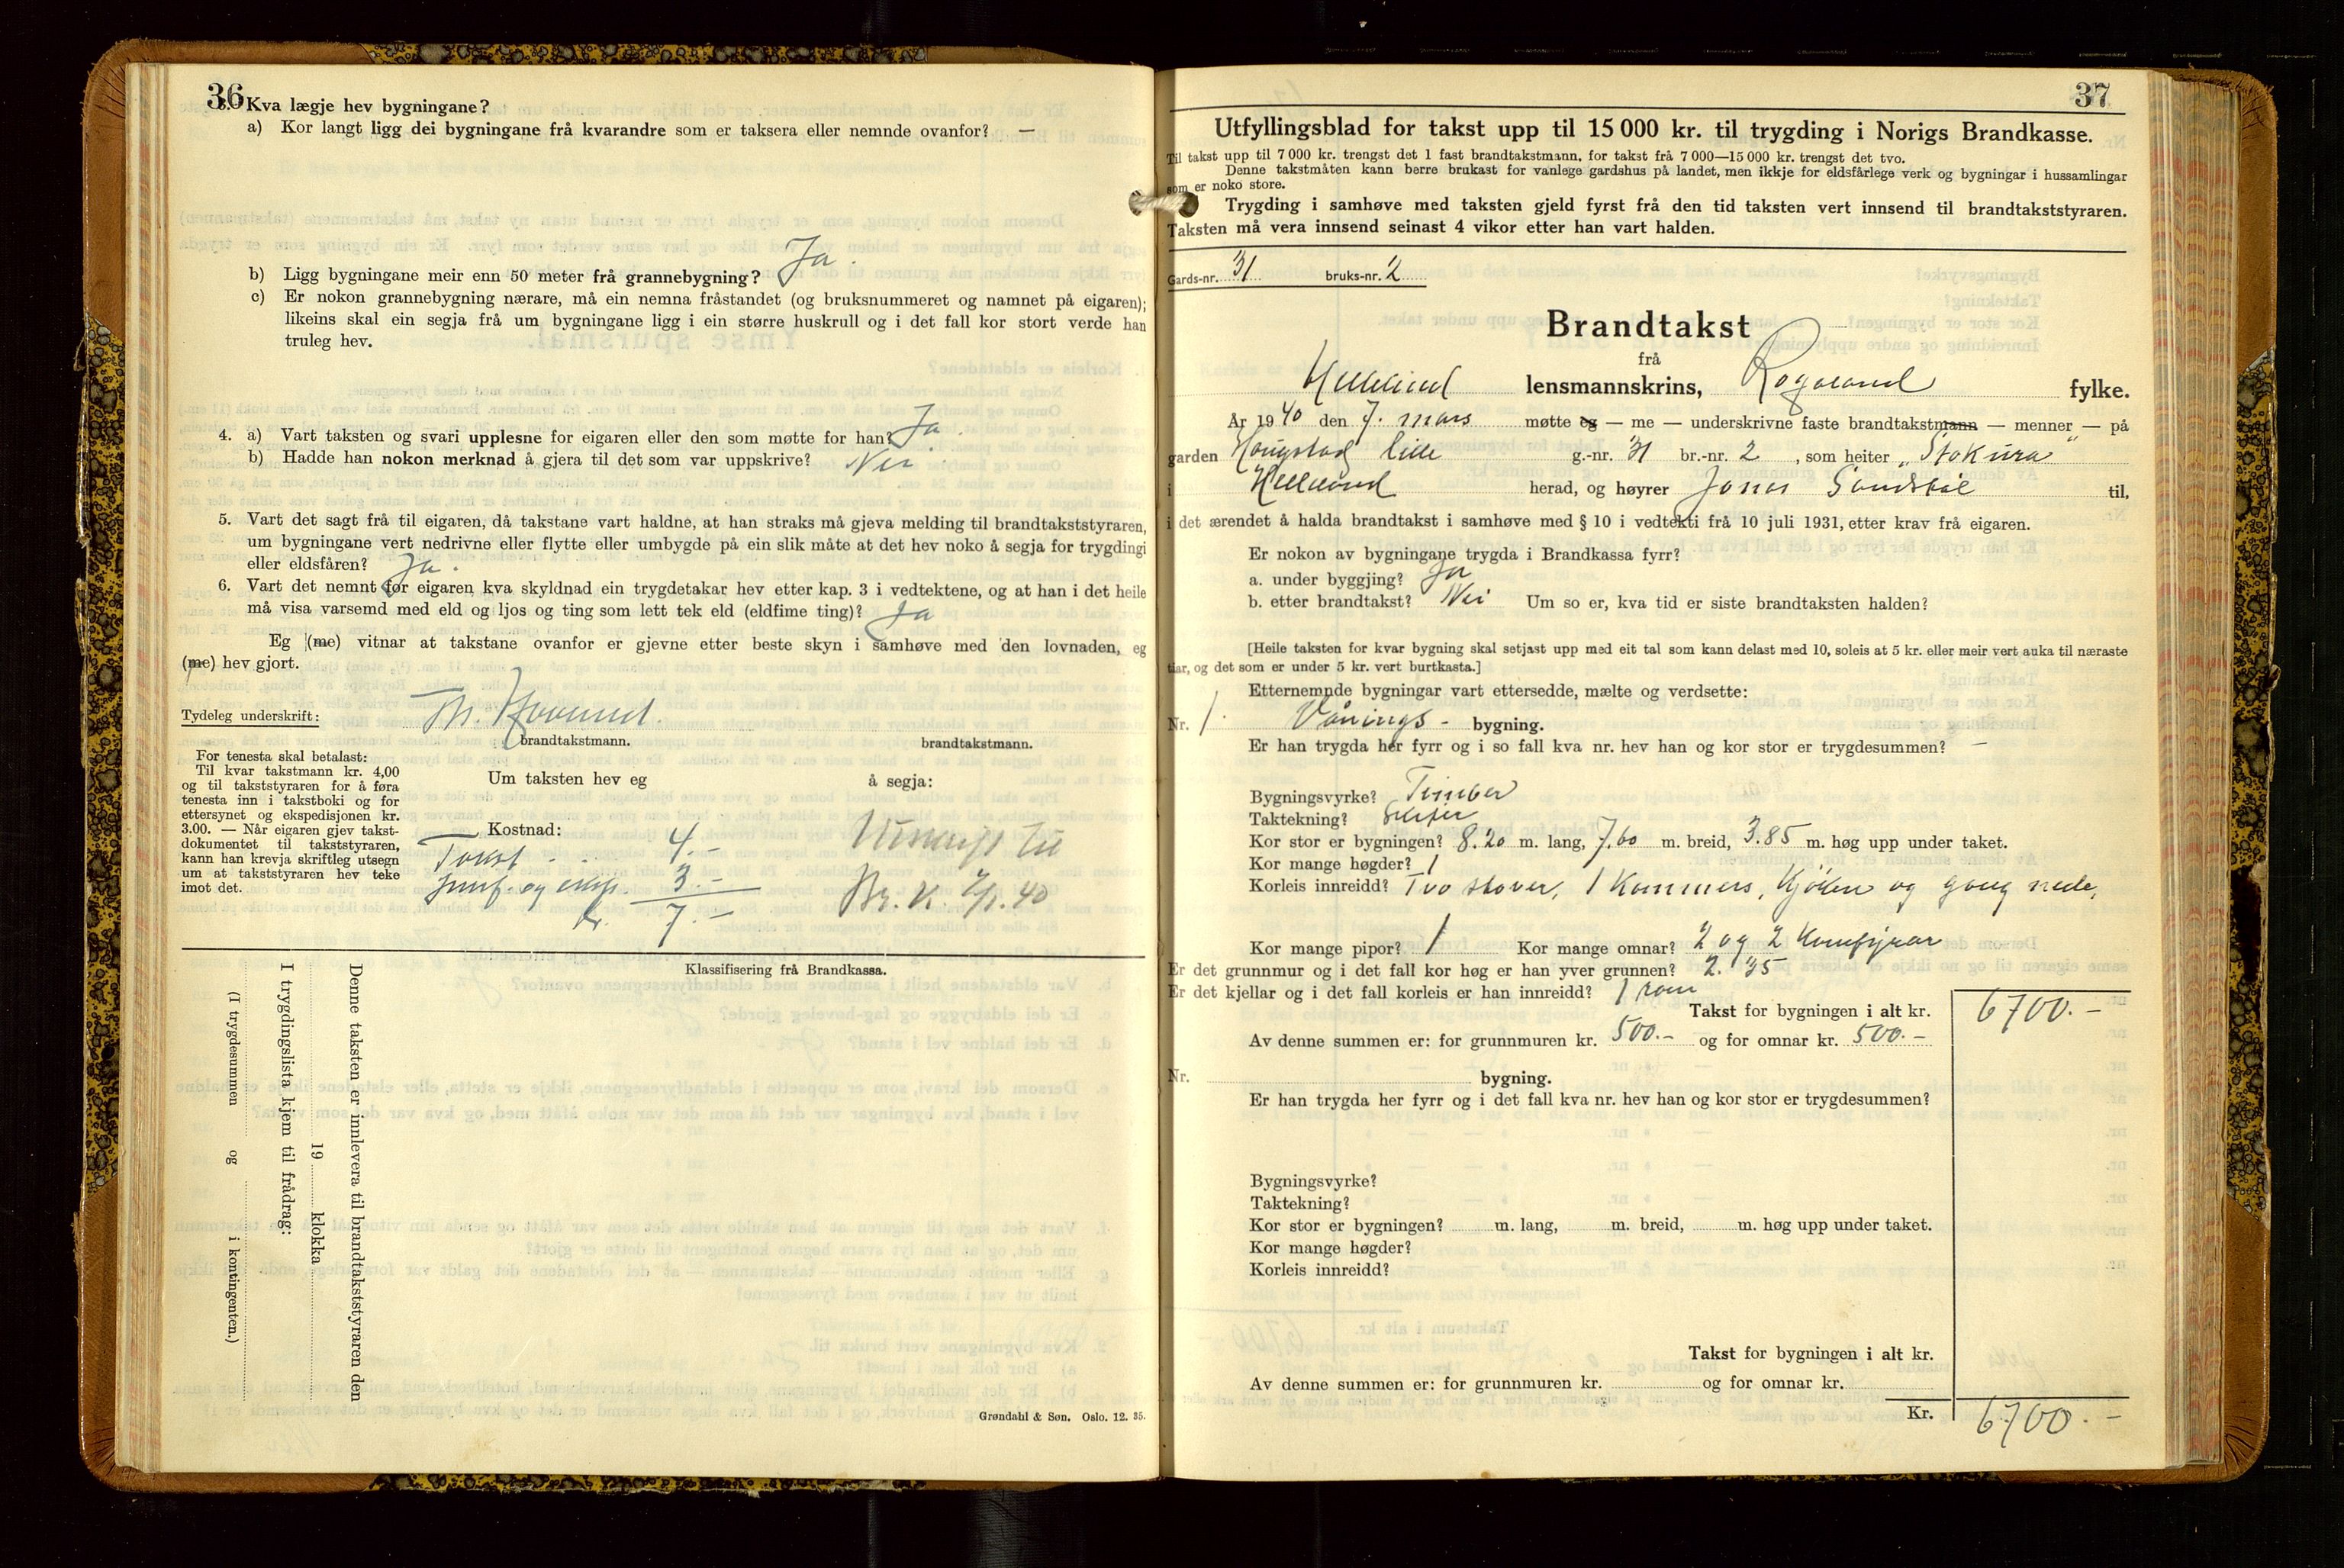 36
3. Kva lægje hev bygningane?
a) Kor langt ligg dei bygningane frå kvarandre som er taksera eller nemnde ovanfor? —
b) Ligg bygningane meir enn 50 meter frå grannebygning? Ja.
c) Er nokon grannebygning nærare, må ein nemna fråstandet (og bruksnummeret og namnet på eigaren);
likeins skal ein segja frå um bygningane ligg i ein større huskrull og i det fall kor stort verde han
truleg hev.
4. a) Vart taksten og svari upplesne for eigaren eller den som møtte for han? Ja.
b) Hadde han nokon merknad å gjera til det som var uppskrive? Nei.
5. Vart det sagt frå til eigaren, då takstane vart haldne, at han straks må gjeva melding til brandtakststyraren,
um bygningane vert nedrivne eller flytte eller umbygde på ein slik måte at det hev noko å segja for trygdingi
eller eldsfåren? Ja.
6. Vart det nemnt for eigaren kva skyldnad ein trygdetakar hev etter kap. 3 i vedtektene, og at han i det heile
må visa varsemd med eld og ljos og ting som lett tek eld (eldfime ting)? Ja
Eg (me) vitnar at takstane ovanfor er gjevne etter beste skyn i samhøve med den lovnaden, eg
(me) hev gjort.
Tydeleg underskrift:
brandtakstmann. brandtakstmann.
For tenesta skal betalast:
Til kvar takstmann kr. 4,00
og til takststyraren for å føra
tenesta inn i takstboki og for
ettersynet og ekspedisjonen kr.
3.00. — Når eigaren gjev takst-
dokumentet til takststyraren,
kann han krevja skriftleg utsegn
um at takststyraren hev teke
imot det.
Um taksten hev eg å segja:
Kostnad:
Takst - - 4.-
og eksp. 3.-
kr. 7.-
Utskrift til
Br. K. 40
Klassifisering frå Brandkassa.
Denne taksten er innlevera til brandtakststyraren den
19 klokka
I trygdingslista kjem til frådrag:
(I trygdesummen og i kontingenten.)
Grøndahl & Søn. Oslo. 12. 35.
37
Utfyllingsblad for takst upp til 15 000 kr. til trygding i Norigs Brandkasse.
Til takst upp til 7 000 kr. trengst det 1 fast brandtakstmann, for takst frå 7 000—15 000 kr. trengst det tvo.
Denne takstmåten kann berre brukast for vanlege gardshus på landet, men ikkje for eldsfårlege verk og bygningar i hussamlingar
som er noko store.
Trygding i samhøve med taksten gjeld fyrst frå den tid taksten vert innsend til brandtakststyraren.
Taksten må vera innsend seinast 4 vikor etter han vart halden.
Gards-nr. 31 bruks-nr. 2
Brandtakst
frå
Helleland lensmannskrins, Rogaland fylke.
År 1940 den 7. mars møtte eg — me — underskrivne faste brandtakstmann — menner — på
garden Haugstad lille g.-nr. 31 br.-nr. 2, som heiter „Stakura"
i Helleland herad, og høyrer Jonas til,
i det ærendet å halda brandtakst i samhøve med § 10 i vedtekti frå 10 juli 1931, etter krav frå eigaren.
Er nokon av bygningane trygda i Brandkassa fyrr?
a. under byggjing? Ja
b. etter brandtakst? Nei Um so er, kva tid er siste brandtaksten halden?
[Heile taksten for kvar bygning skal setjast upp med eit tal som kann delast med 10, soleis at 5 kr. eller meir vert auka til næraste
tiar, og det som er under 5 kr. vert burtkasta.]
Etternemnde bygningar vart ettersedde, mælte og verdsette:
Nr. 1. Vånings- bygning.
Er han trygda her fyrr og i so fall kva nr. hev han og kor stor er trygdesummen? —
Bygningsvyrke? Timber
Taktekning? Skifer
Kor stor er bygningen? 8.20 m. lang, 7.60 m. breid, 3.85 m. høg upp under taket.
Kor mange høgder? 1
Korleis innreidd? Tvo stover, 1 Kammers, Kjøken og gang nede,
Kor mange pipor? 1 Kor mange omnar? 2 og 2 Komfyrar
Er det grunnmur og i det fall kor høg er han yver grunnen? 2.35
Er det kjellar og i det fall korleis er han innreidd? 1 rom
Takst for bygningen i alt kr. 6700.-
Av denne summen er: for grunnmuren kr. 500.- og for omnar kr. 500.-
Nr. bygning.
Er han trygda her fyrr og i det fall kva nr. hev han og kor stor er trygdesummen?
Bygningsvyrke?
Taktekning?
Kor stor er bygningen? m. lang, m. breid, m. høg upp under taket.
Kor mange høgder?
Korleis innreidd?
Takst for bygningen i alt kr.
Av denne summen er: for grunnmuren kr. og for omnar kr.
Kr. 6700.-